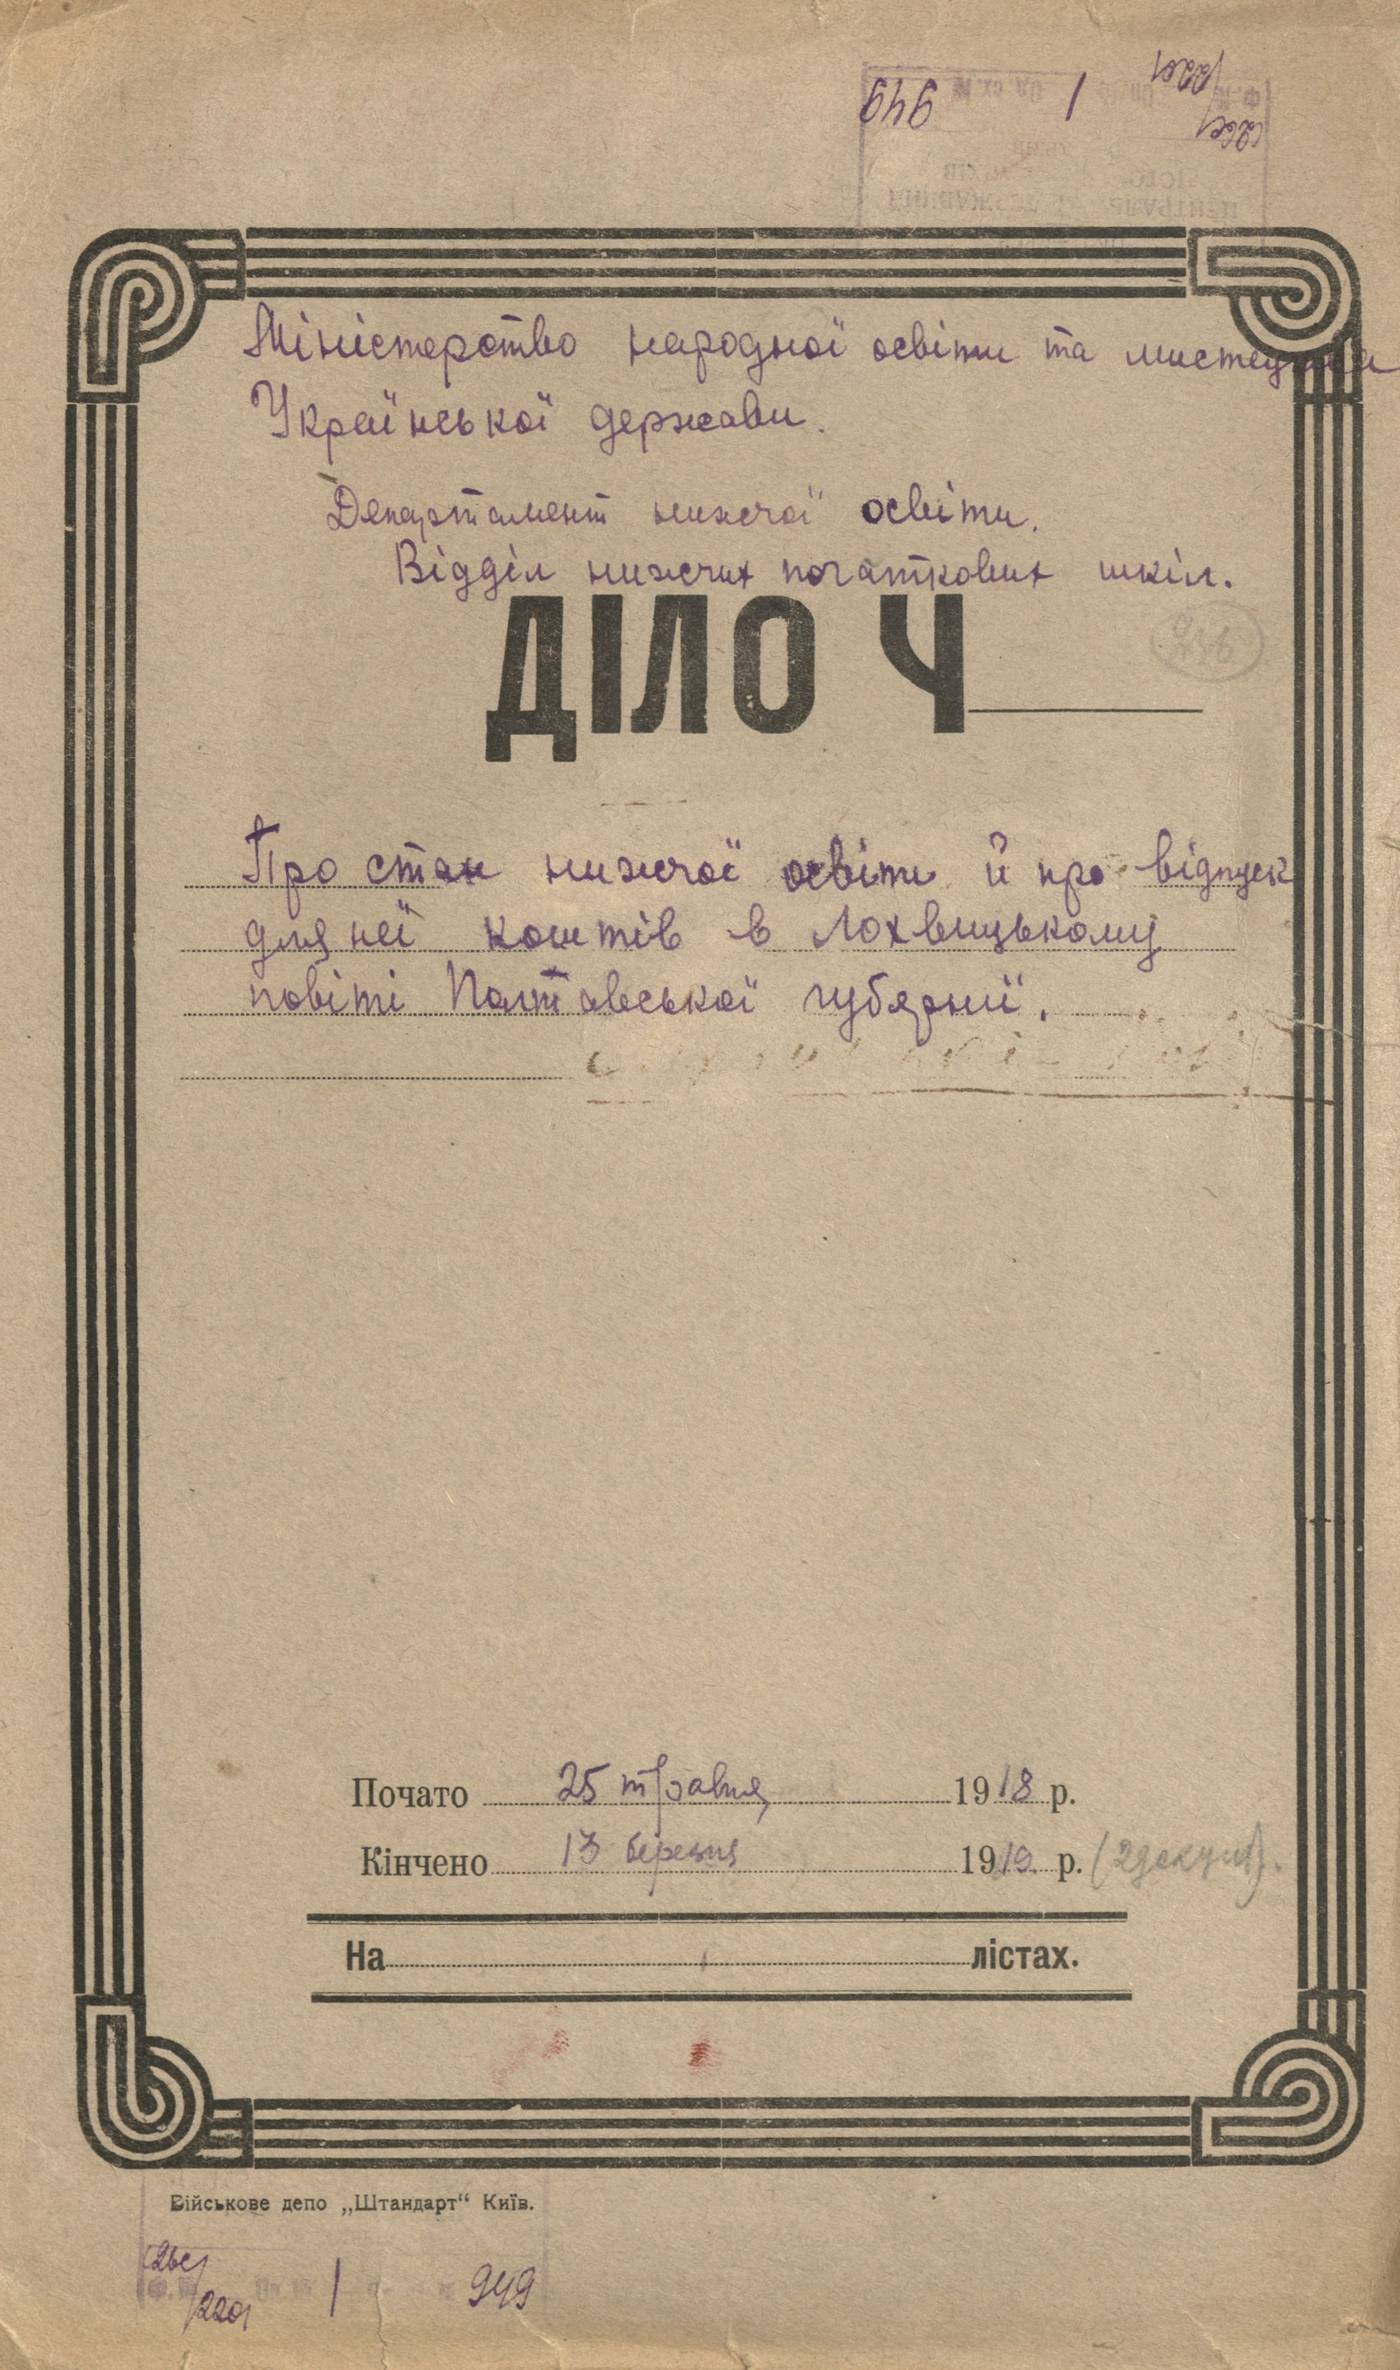 949 1 2201
Міністерство народної освіти та мистецтва
Української держави.
Департамент нижчої освіти.
Відділ нижчих початкових шкіл.
ДІЛО Ч
Про стан нижчої освіти й про відпуск
для неї коштів в Лохвицькому
повіті Полтавської губернії.
Почато 25 травня 1918 р.
Кінчено 13 березня 1919 р.
На лістах.
Військове депо „Штандарт“ Київ.
2201 1 949